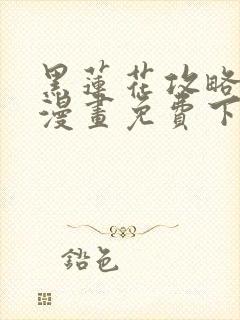 黑蓮花攻略
漫畫免費下
鉛色